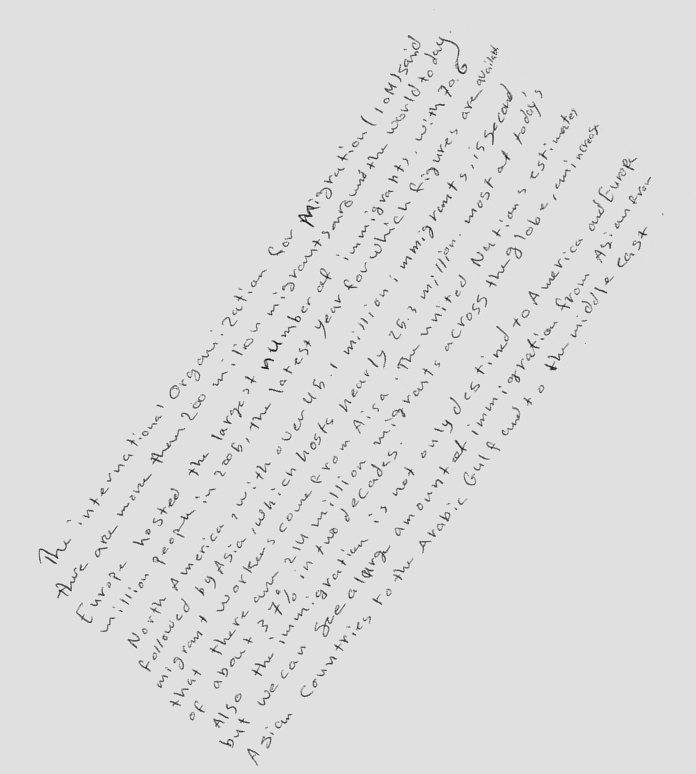 The international Organization for Migration (IOM) said
there are more than 200 milion migrants around the world today.
Europe hosted the largest number of immigrants, with 70.6
million people in 2005, The latest year for which figures are available
North America, with over 45.1 million immigrants, is second
followed by Asia, which hosts nearly 25.3 million. most of today's
migrant workers come from Aisa. The united Nations estimates
that there are 214 million migrants across the globe, an increase
of about 37% in two decades.
Also the immigration is not only destined to America and Europe
but we can see a large amount of immigration from Asian from
Asian Countries to the Arabic Gulf and to the middle east.